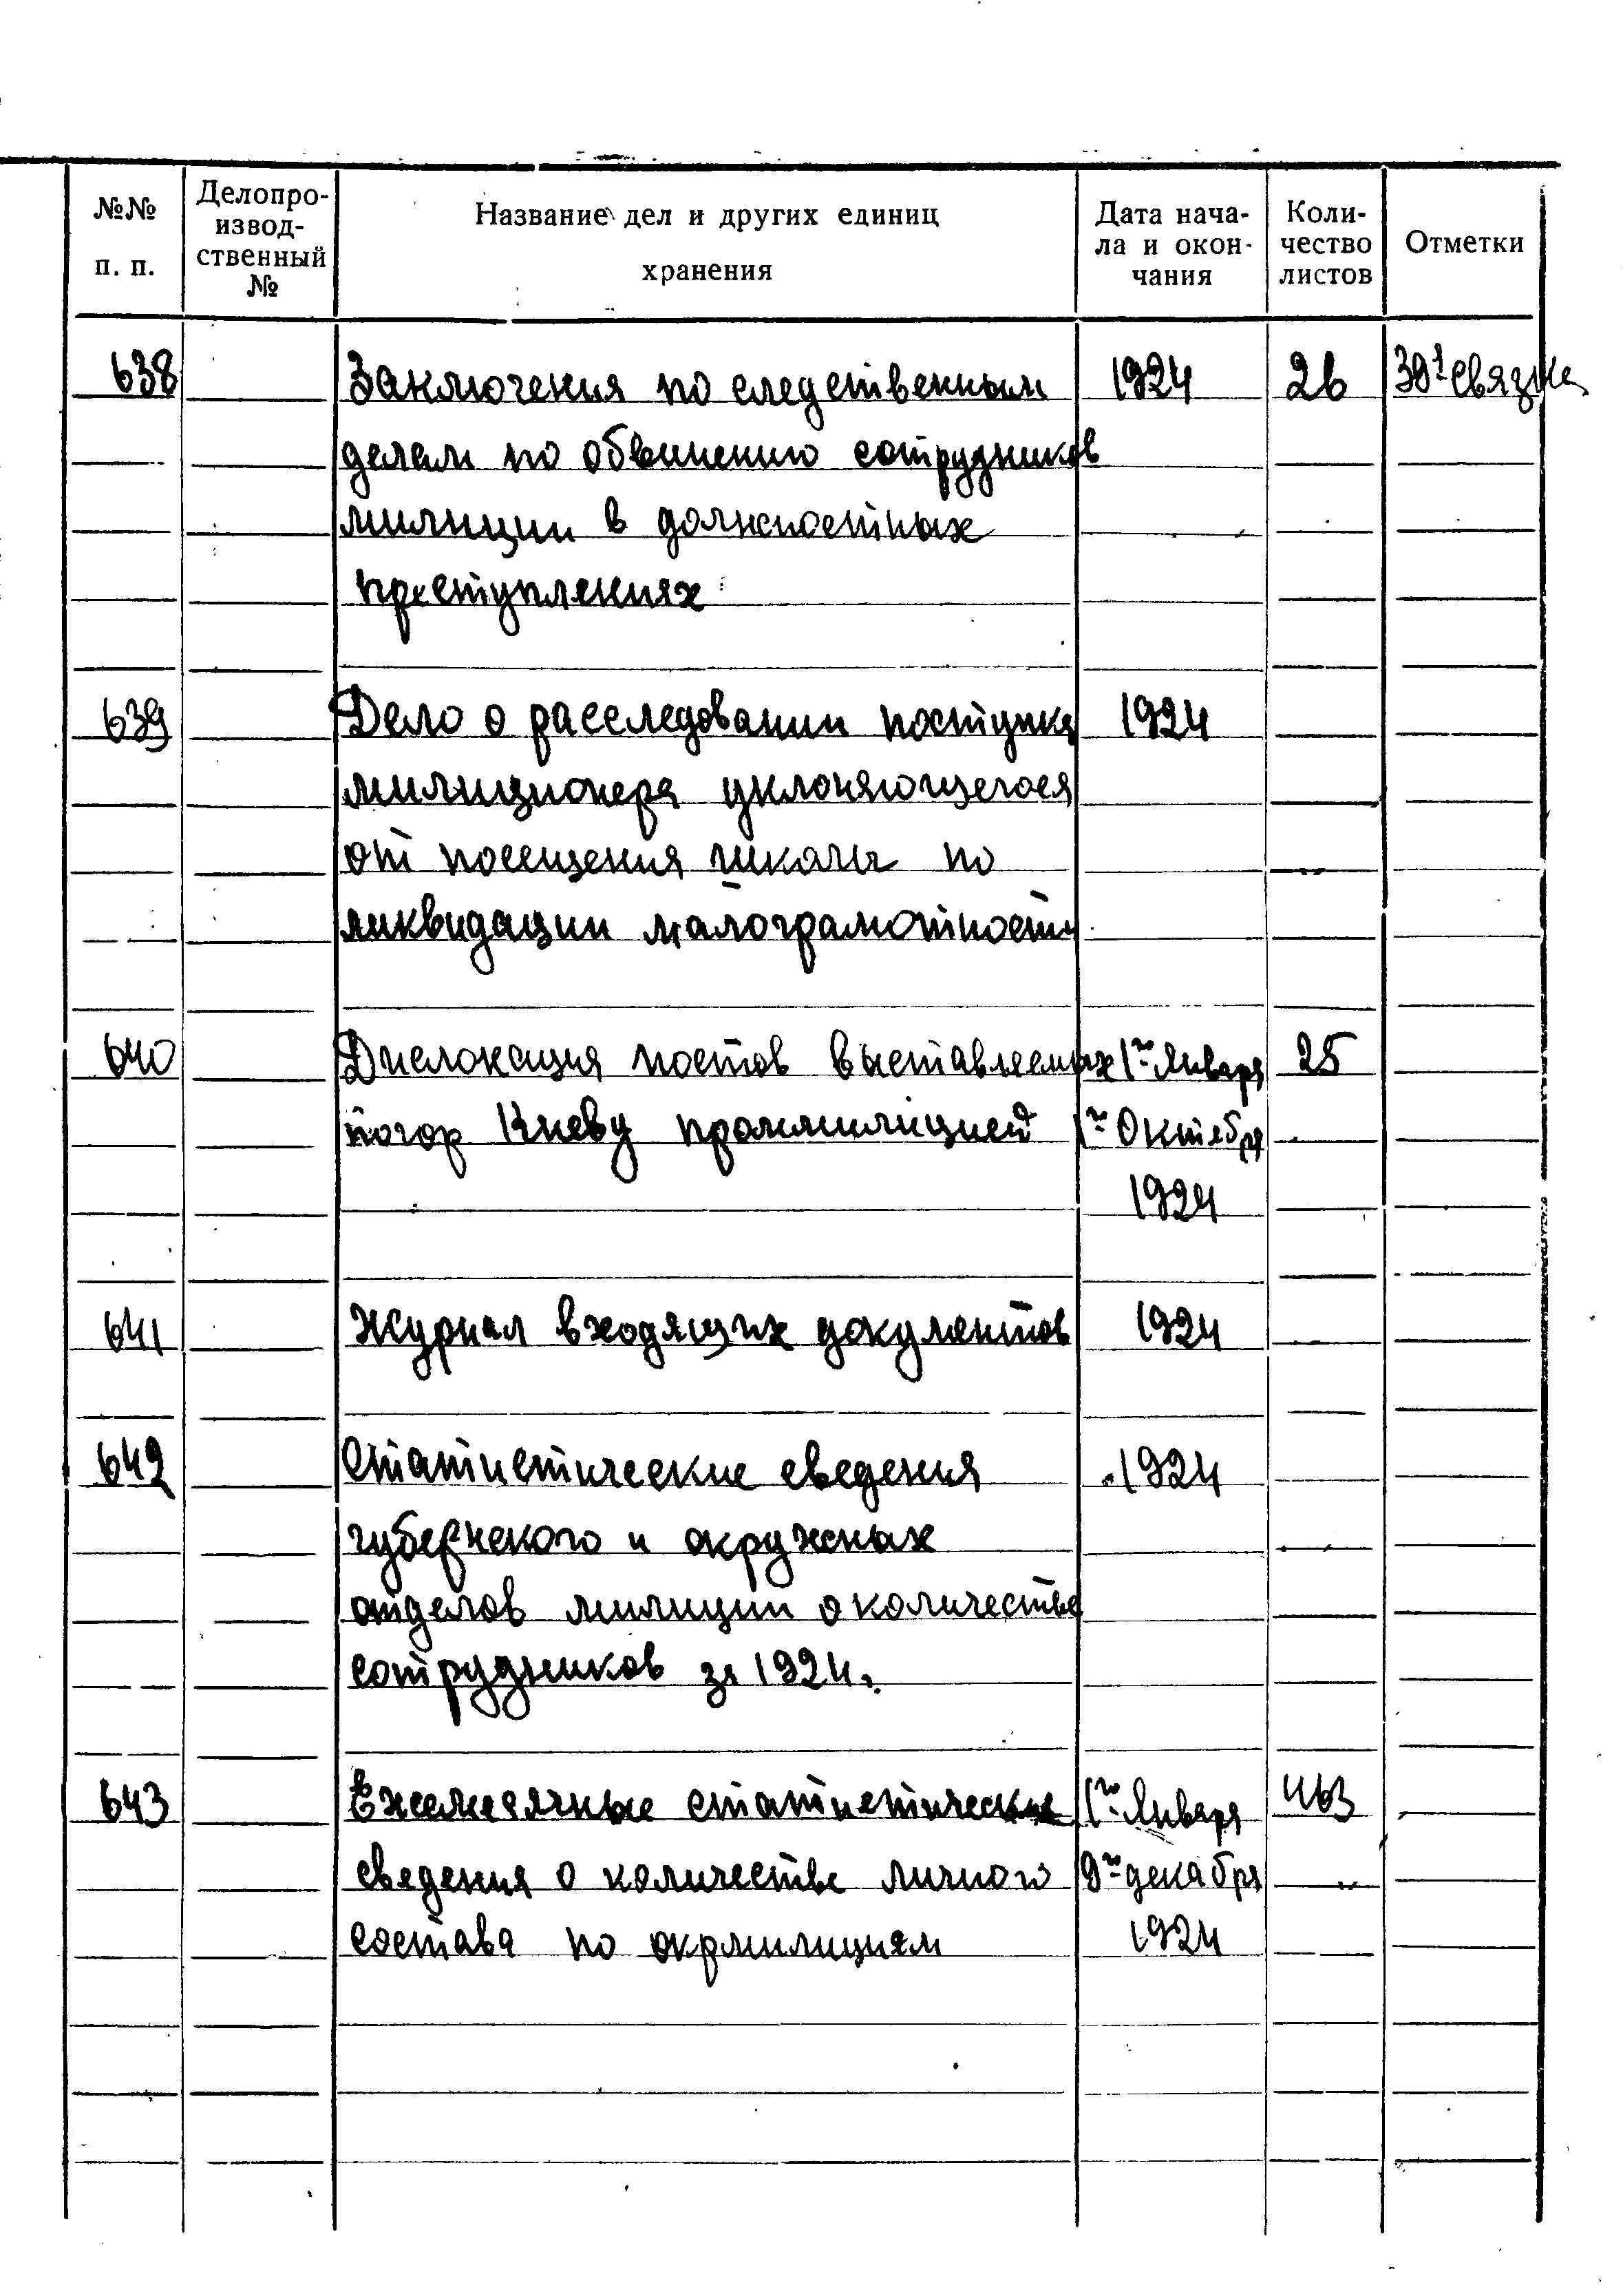 №№ п. п.
Делопро-
извод-
ственный
№
Название дел и других единиц
хранения
Дата нача-
ла и окон-
чания
Коли-
чество
листов
Отметки
638 Заключения по следственным 1924 26 связка
делам по обвинению сотрудников
милиции в должностных
преступлениях
639 Дело о расследовании поступка 1924
милиционера уклоняющегося
от посещения школы по
ликвидации малограмотности
640 Дислокация постов выставляемых 1го Января 25
погор Киеву проммилицией 1го Октября
1924
641 Журнал входящих документов 1924
642 Статистические сведения 1924
губернского и окружных
отделов милиции о количестве
сотрудников за 1924г.
643 Ежемесячные статистические 1го Января 463
сведения о количестве личного 9го декабря
состава по окрмилициям 1924